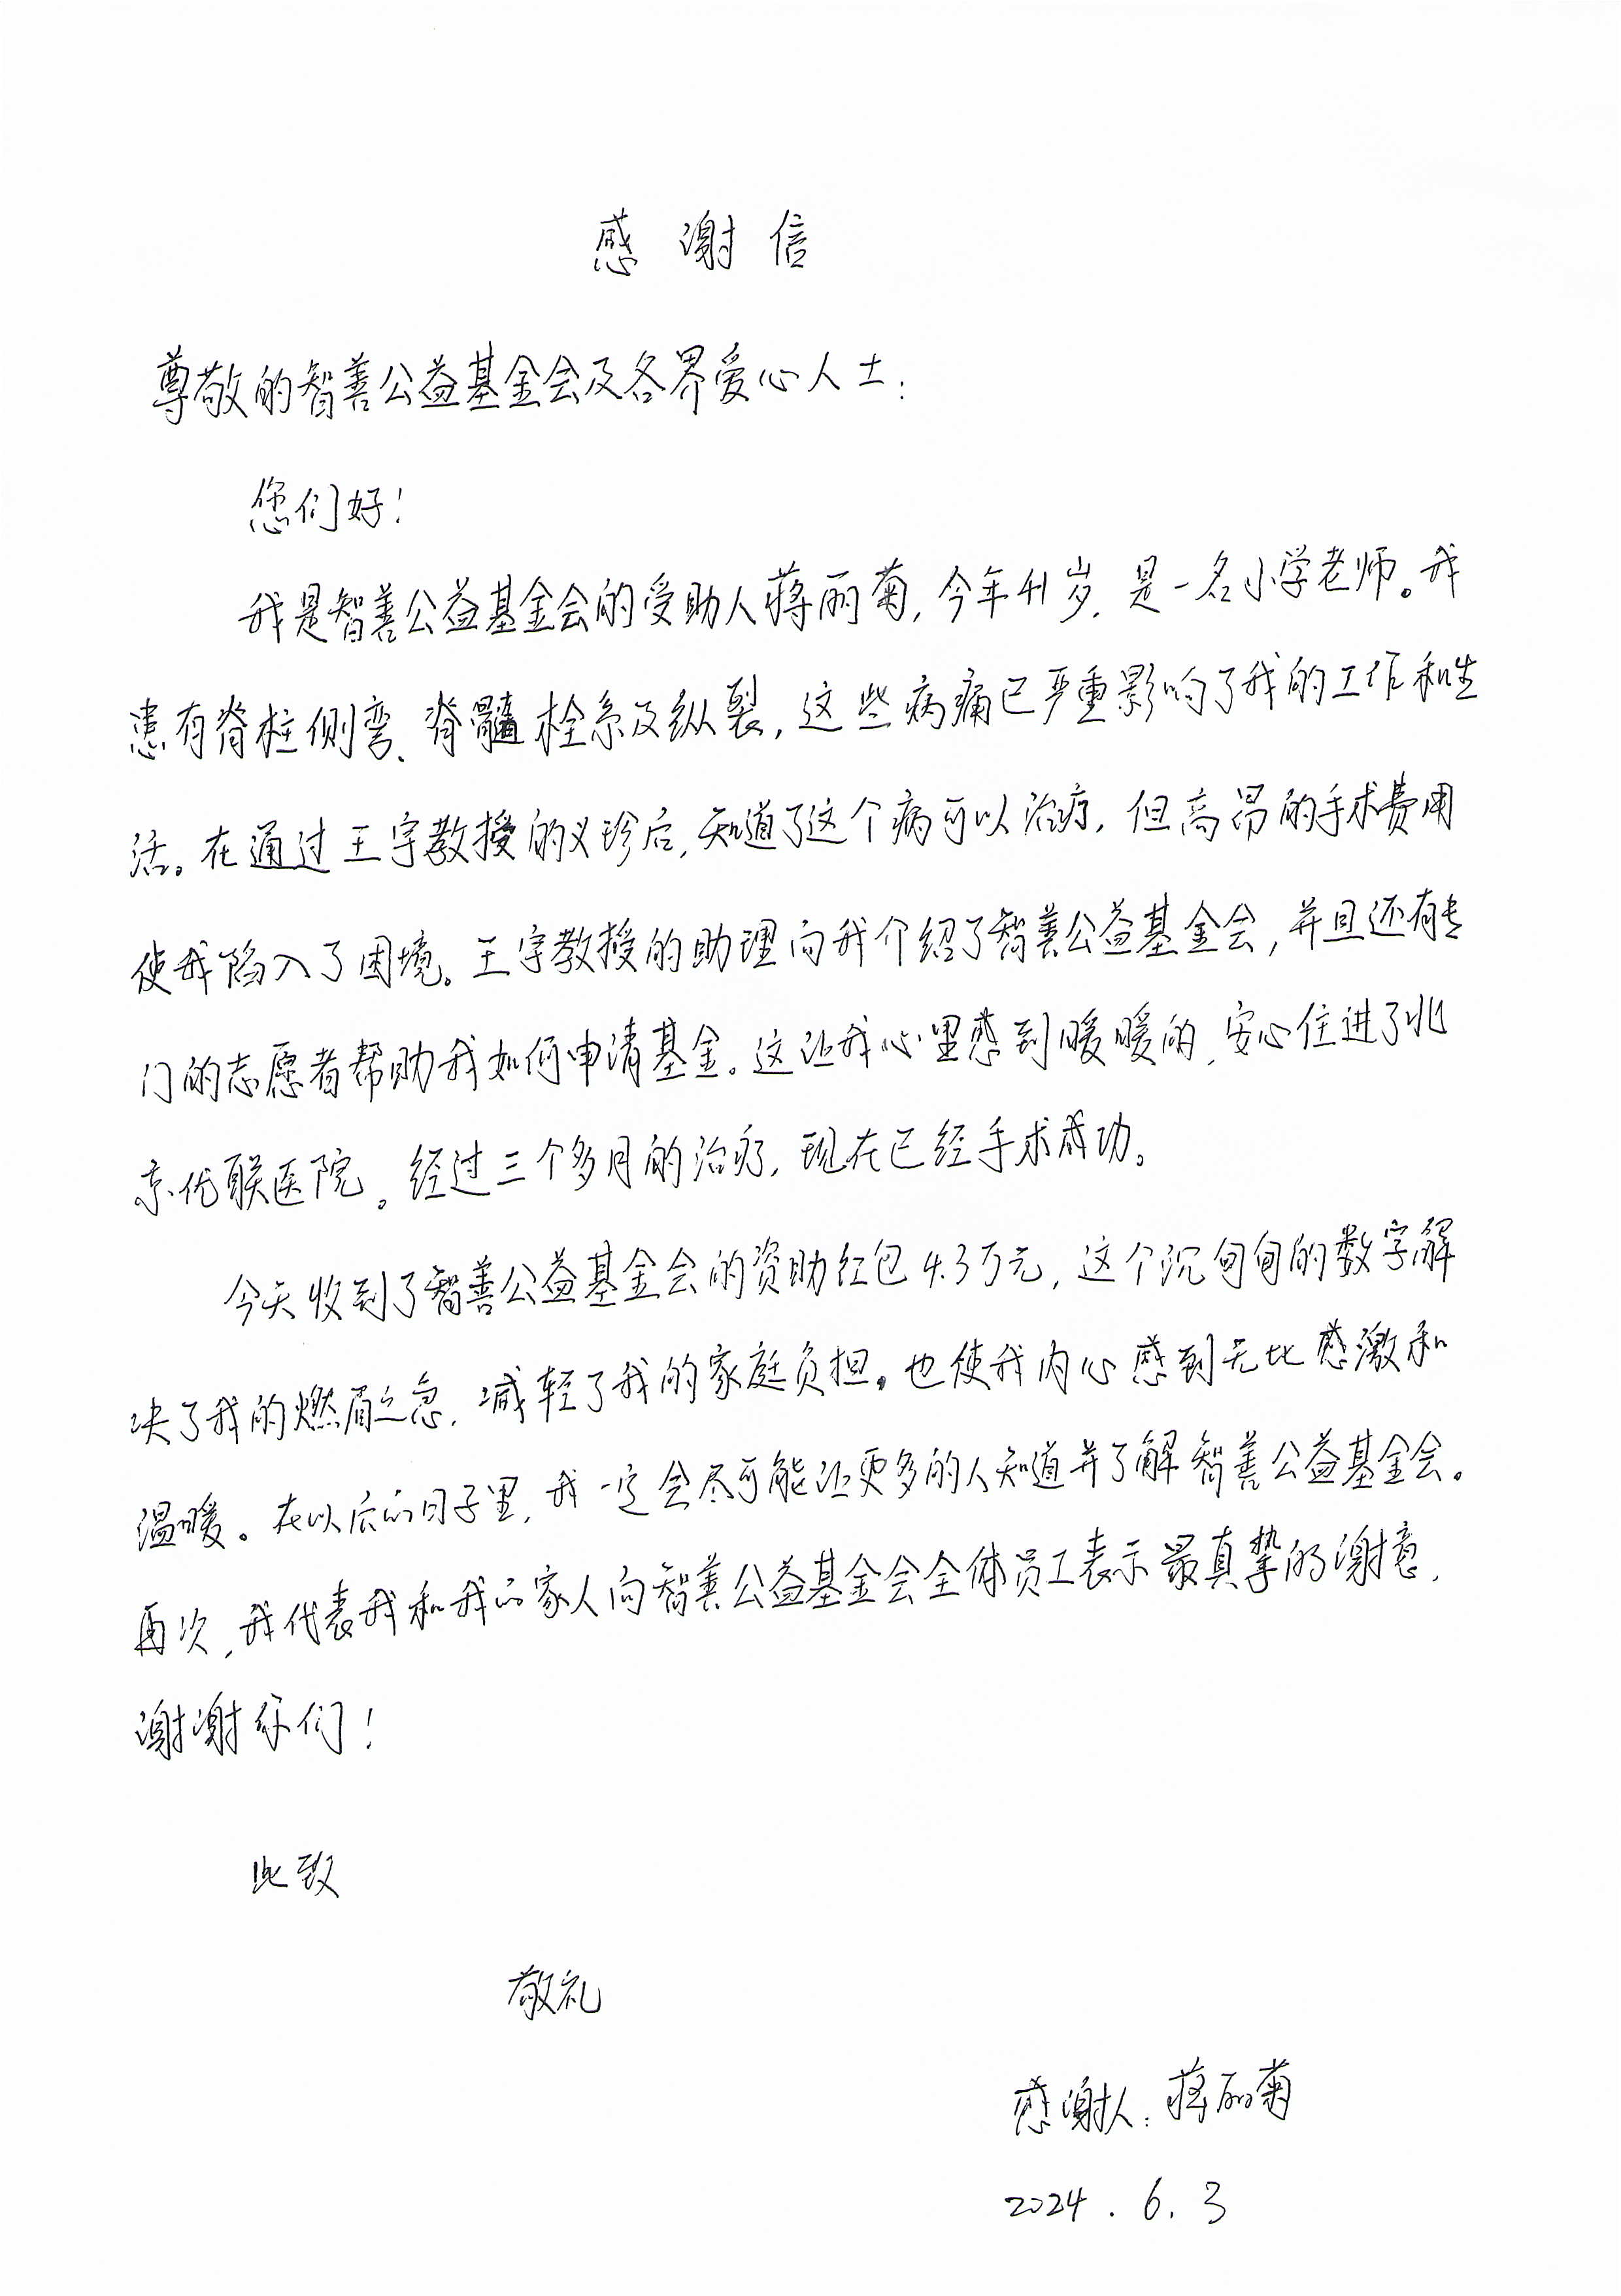 感谢信
尊敬的智善公益基金会及各界爱心人士：
您们好！
我是智善公益基金会的受助人蒋丽菊，今年41岁，是一名小学老师。我
患有脊柱侧弯、脊髓栓系及纵裂，这些病痛已严重影响了我的工作和生
活。在通过王宇教授的义珍后，知道了这个病可以治疗，但高昂的手术费用
使我陷入了困境。王宇教授的助理向我介绍了智善公益基金会，并且还有专
门的志愿者帮助我如何申请基金。这让我心里感到暖暖的，安心住进了北
京优联医院。经过三个多月的治疗，现在已经手术成功。
今天收到了智善公益基金会的资助红包4.3万元，这个沉甸甸的数字解
决了我的燃眉之急，减轻了我的家庭负担。也使我内心感到无比感激和
温暖。在以后的日子里，我一定会尽可能让更多的人知道并了解智善公益基金会。
再次，我代表我和我的家人向智善公益基金会全体员工表示最真挚的谢意，
谢谢你们！
此致
敬礼
感谢人：蒋丽菊
2024.6.3